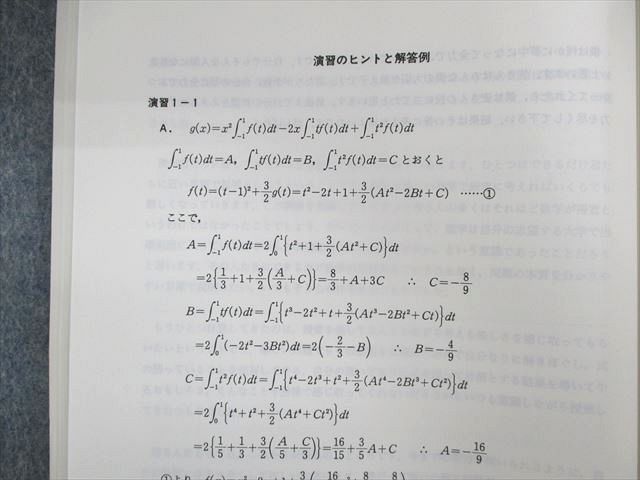 演習のヒントと解答例
演習1－1
A． g(x)=x²∫₋₁¹f(t)dt−2x∫₋₁¹tf(t)dt+∫₋₁¹t²f(t)dt
∫₋₁¹f(t)dt=A，∫₋₁¹tf(t)dt=B，∫₋₁¹t²f(t)dt=C とおくと
f(t)=(t−1)²+3/2g(t)=t²−2t+1+3/2(At²−2Bt+C) ……①
ここで，
A=∫₋₁¹f(t)dt=2∫₀¹{t²+1+3/2(At²+C)}dt
=2{1/3+1+3/2(A/3+C)}=8/3+A+3C ∴ C=−8/9
B=∫₋₁¹tf(t)dt=∫₋₁¹{t³−2t²+t+3/2(At³−2Bt²+Ct)}dt
=2∫₀¹(−2t²−3Bt²)dt=2(−2/3−B) ∴ B=−4/9
C=∫₋₁¹t²f(t)dt=∫₋₁¹{t⁴−2t³+t²+3/2(At⁴−2Bt³+Ct²)}dt
=2∫₀¹{t⁴+t²+3/2(At⁴+Ct²)}dt
=2{1/5+1/3+3/2(A/5+C/3)}=16/15+3/5A+C ∴ A=−16/9
①より